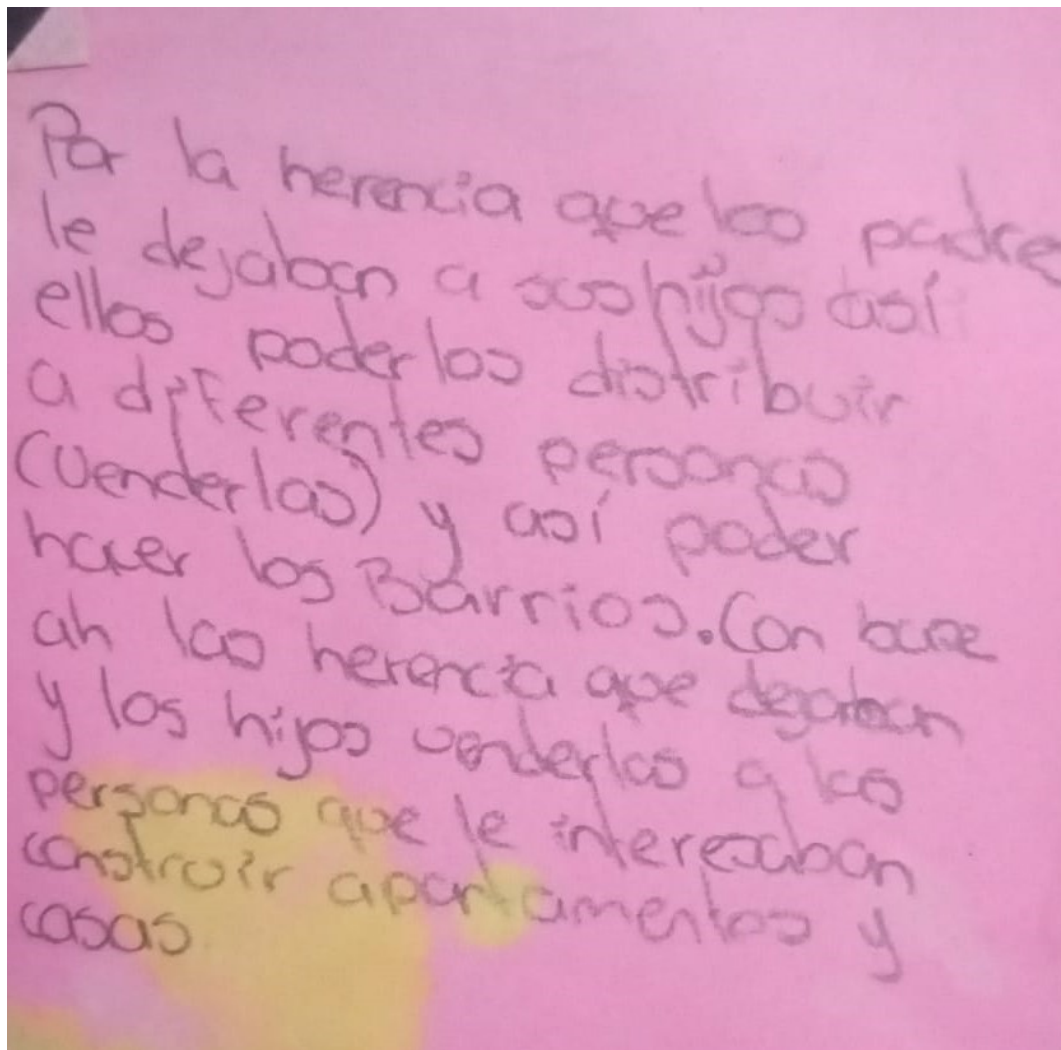 Por la herencia que los padre
le dejaban a sus hijos así
ellos poder los distribuir
a diferentes personas
(Venderlas) y así poder
hacer los Barrios. Con base
ah las herencia que dejaban
y los hijos venderlas a las
personas que le interesaban
construir apartamentos y
casas